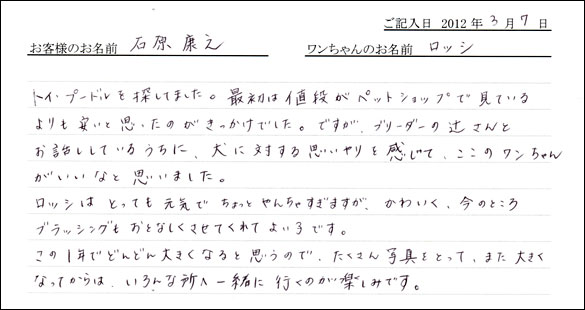 ご記入日 2012年3月7日
お客様のお名前 石原康之 ワンちゃんのお名前 ロッシ
トイ・プードルを探してました。最初は値段がペットショップで見ている
よりも安いと思ったのがきっかけでした。ですが、ブリーダーの辻さんと
お話ししているうちに、犬に対する思いやりを感じて、ここのワンちゃん
がいいなと思いました。
ロッシはとっても元気でちょっとやんちゃすぎますが、かわいく、今のところ
ブラッシングもおとなしくさせてくれてよい子です。
この1年でどんどん大きくなると思うので、たくさん写真をとって、また大きく
なってからは、いろんな所へ一緒に行くのが楽しみです。